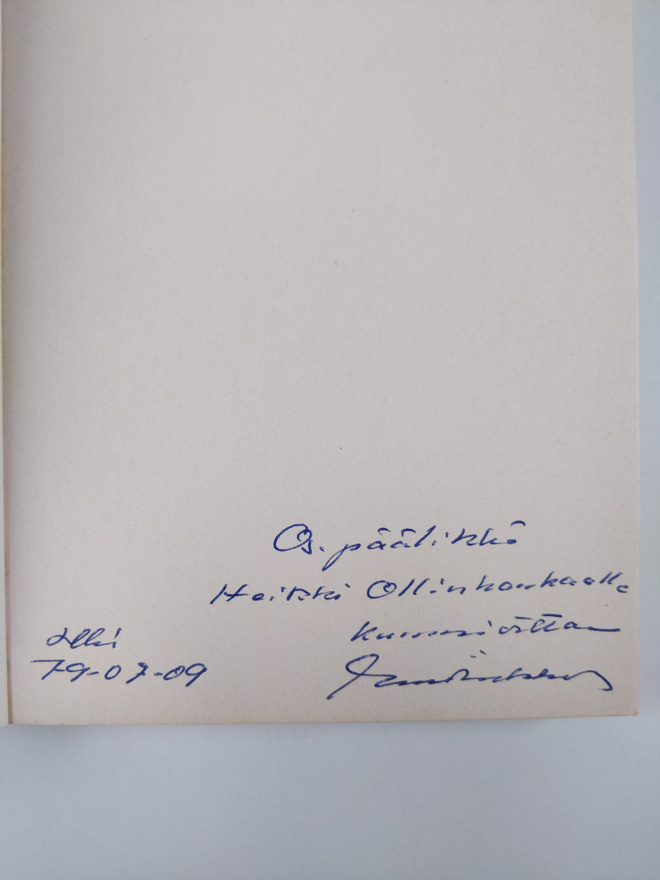 Os. päälikkö
Heikki Ollinkonkaalle
kunnioittaen
Hki
79-07-09